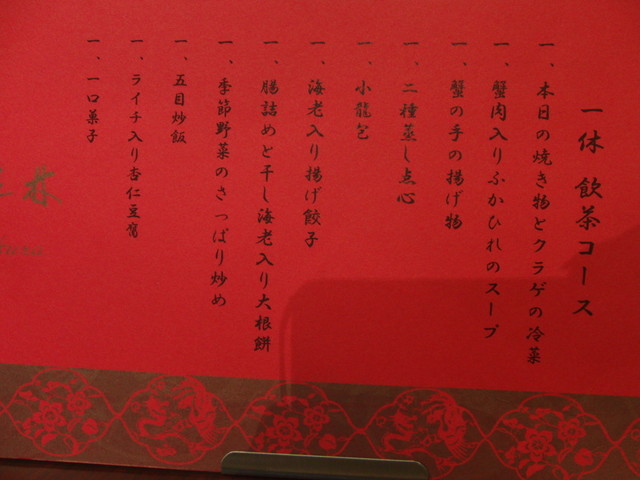 一休 飲茶コース
一、本日の焼き物とクラゲの冷菜
一、蟹肉入りふかひれのスープ
一、蟹の手の揚げ物
一、二種蒸し点心
一、小龍包
一、海老入り揚げ餃子
一、腸詰めと干し海老入り大根餅
一、季節野菜のさっぱり炒め
一、五目炒飯
一、ライチ入り杏仁豆腐
一、一口菓子